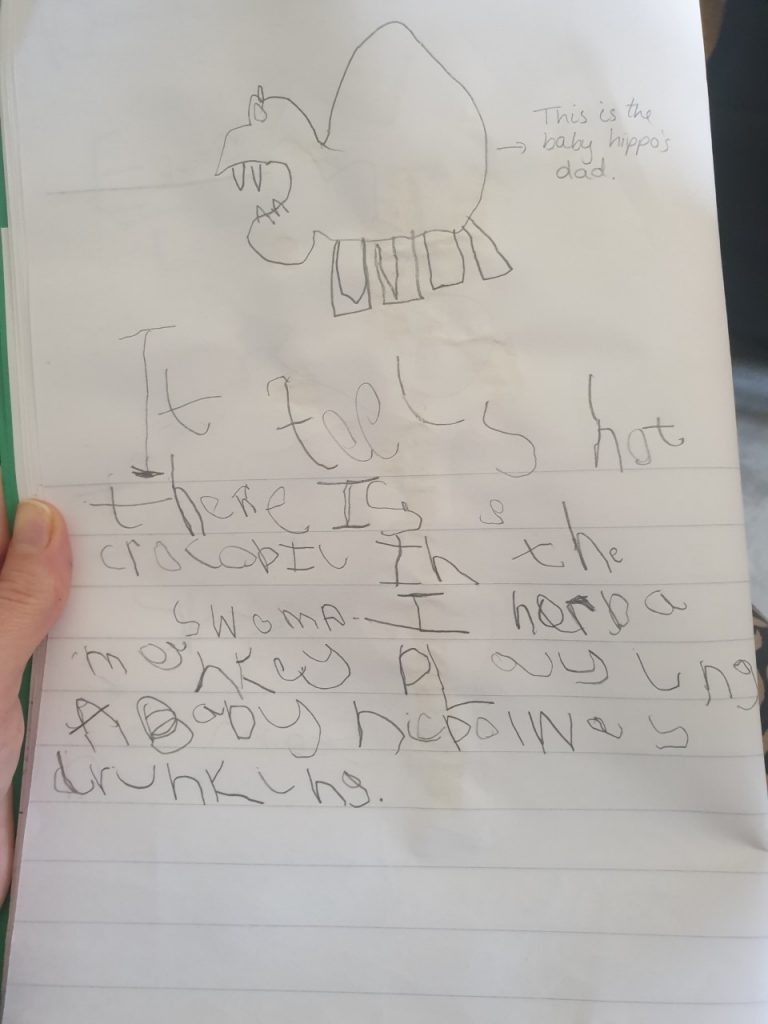 This is the
baby hippo's
dad.
It feels hot
there Is a
crocodil In the
swomp. I herd a
monkey playing
A Baby hippo was
drunking.